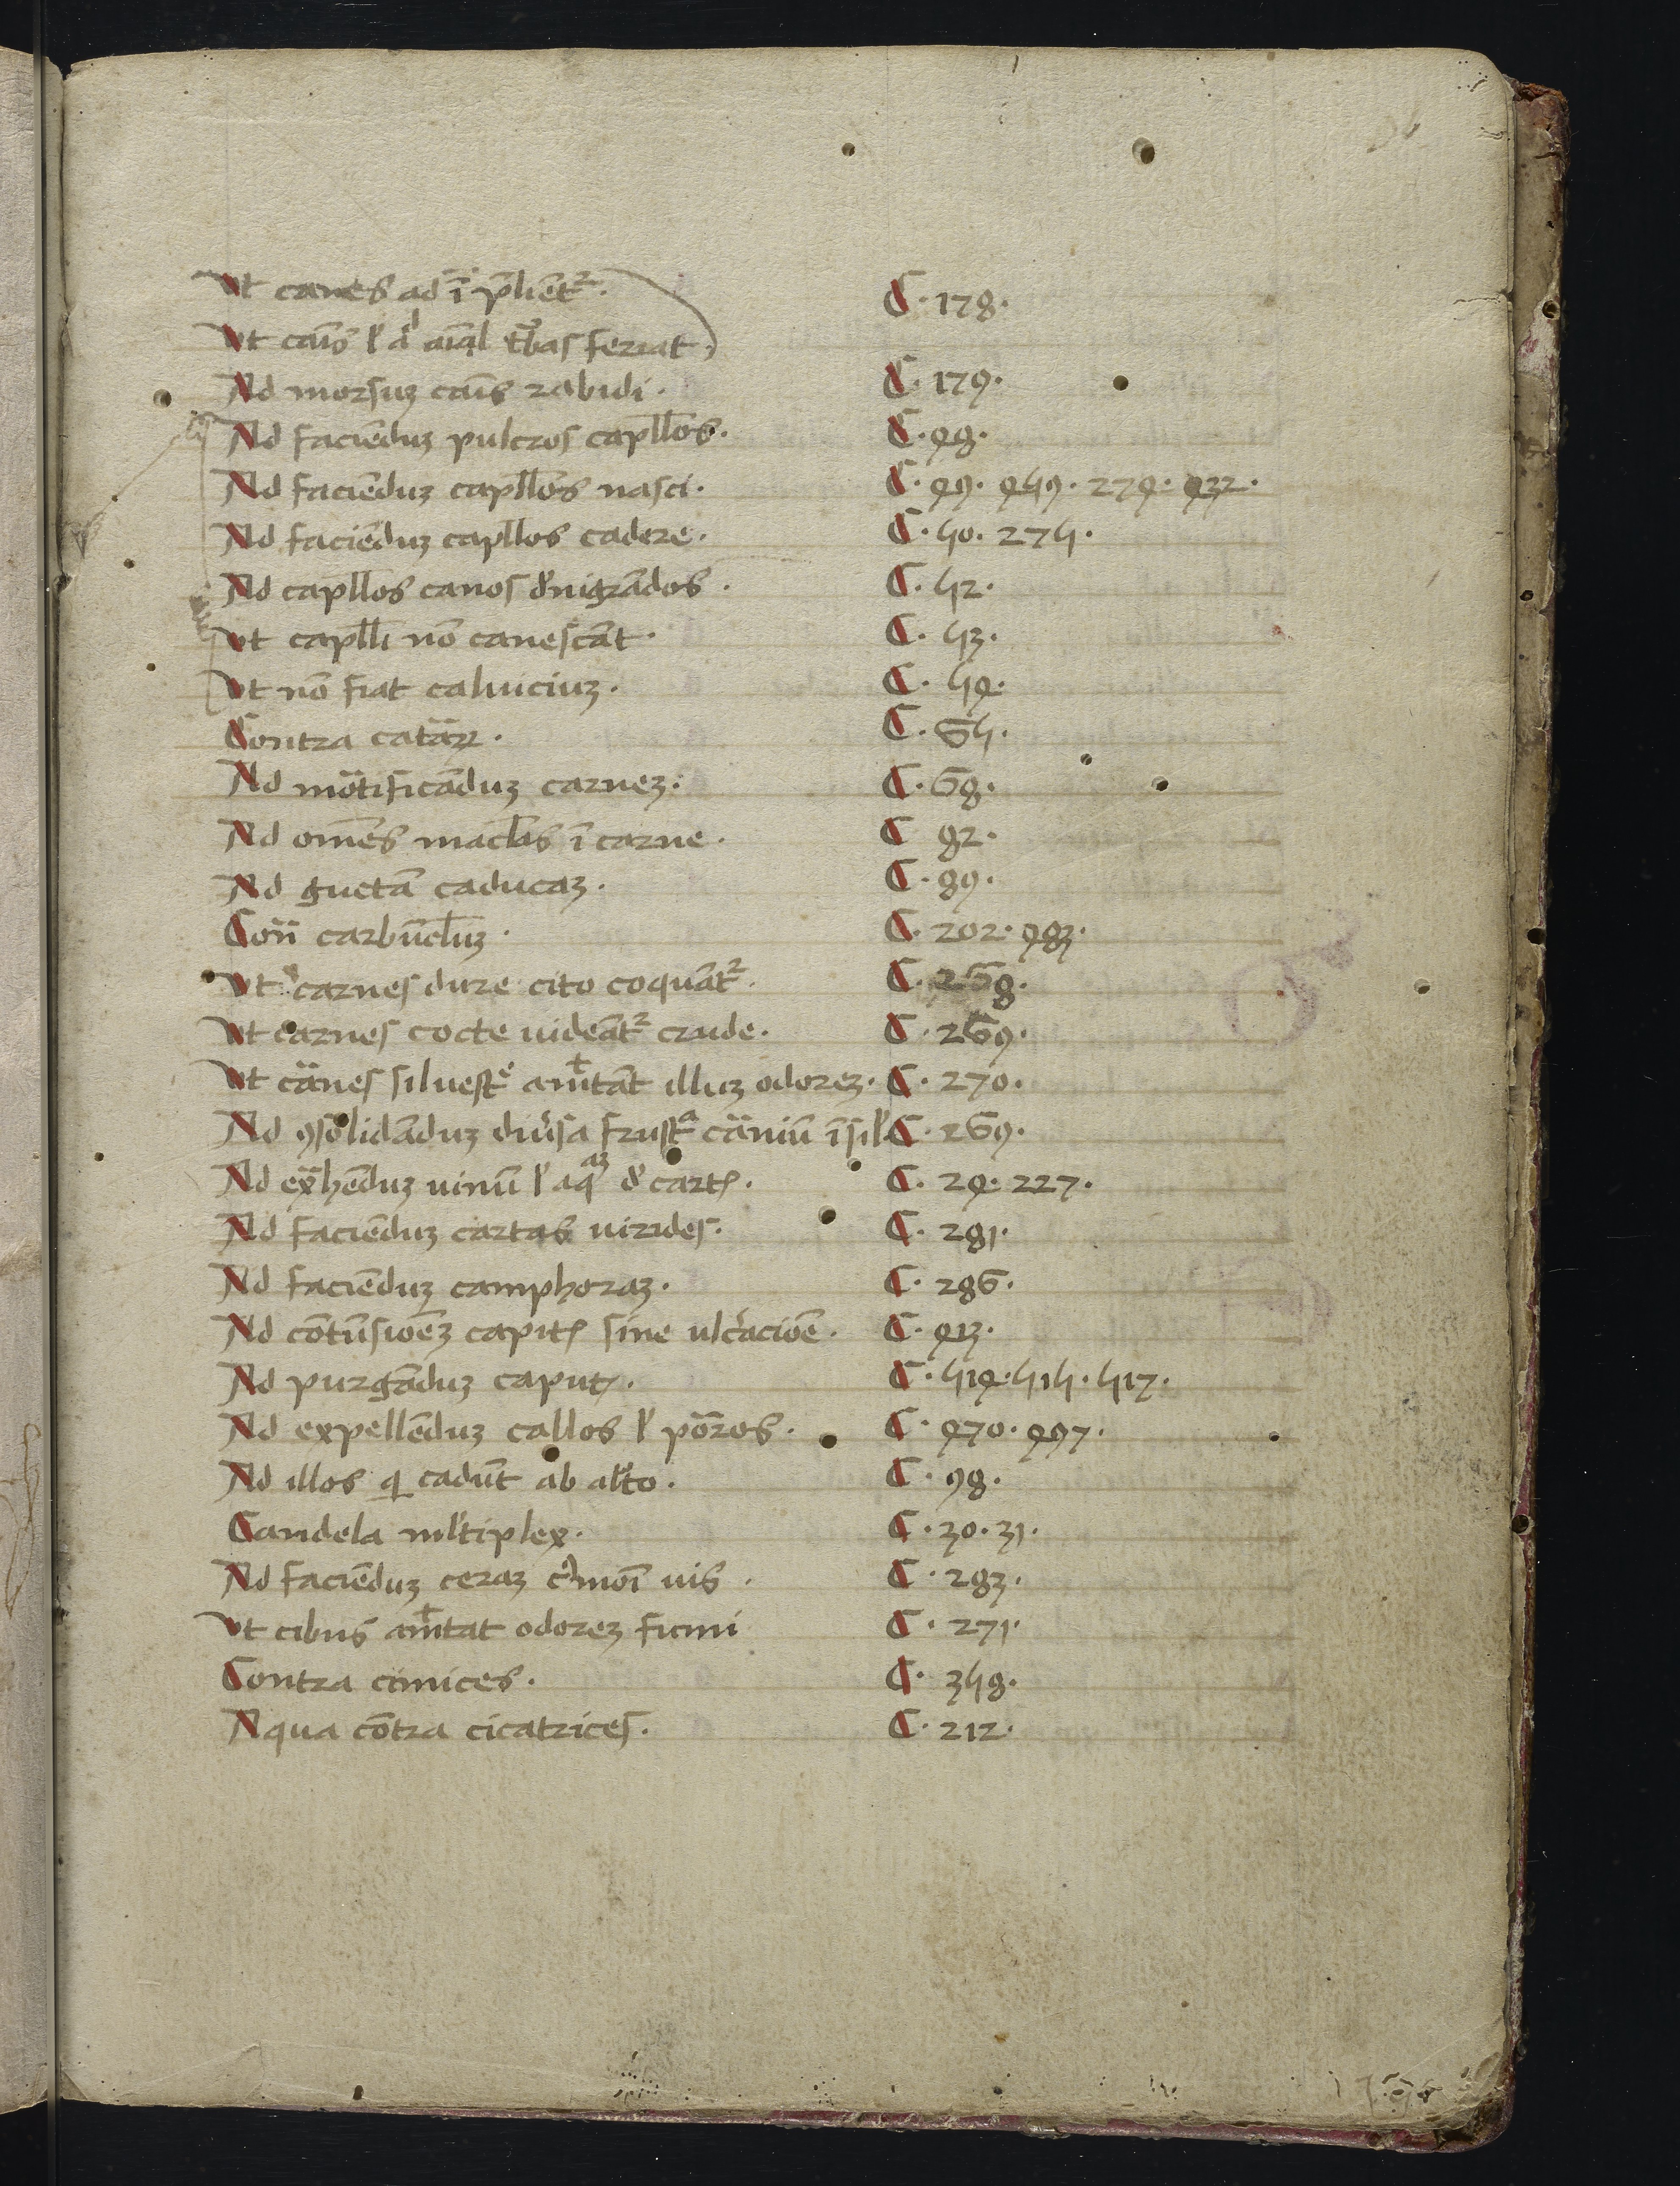 Ut canes ad īpliēt².
C. 178.
Ut caīs l' aīal feriat.
Ad morsuꝫ caīs rabidi.
C. 179.
Ad faciēduꝫ pulcros capll̄os.
C. 48.
Ad faciēduꝫ capll̄os nasci.
C. 49. 459. 274. 432.
Ad faciēduꝫ capll̄os cadere.
C. 50. 275.
Ad capll̄os canos d'nigrādos.
C. 52.
Ut capll̄i nō canescāt.
C. 53.
Ut nō fiat caluiciuꝫ.
C. 54.
Contra catar̄ꝝ.
C. 65.
Ad mōtificāduꝫ carneꝫ.
C. 68.
Ad om̄es macl̄as ī carne.
C 82.
Ad guctā caducaꝫ.
C. 89.
Con̄ carbūcl̄uꝫ.
C. 202. 483.
Ut carnes dure cito coquāt².
C. 268.
Ut carnes cocte uideāt² crude.
C. 269.
Ut cānes siluest᷒ am̄tāt illuꝫ odoreꝫ.
C. 270.
Ad ꝯsolidāduꝫ diu'sa frustͣ cāniū īsil'
C. 269.
Ad ex̄hēduꝫ uinū l' aqͣꝫ d' cartꝭ.
C. 24. 227.
Ad faciēduꝫ cartas uirides.
C. 281.
Ad faciēduꝫ camphoraꝫ.
C. 286.
Ad cōtūsioēꝫ capitꝭ sine ulc'acioē.
C. 413.
Ad purgāduꝫ caput.
C. 514. 515. 517.
Ad expellēduꝫ callos l' pōros.
C. 470. 497.
Ad illos q̲ cadūt ab alto.
C. 98.
Candela ml'tiplex.
C. 30. 31.
Ad faciēduꝫ ceraꝫ moī uis.
C. 283.
Ut cibus am̄tat odoreꝫ fumi
C. 271.
Contra cimices.
C. 358.
Aqua cōtra cicatrices.
C. 212.